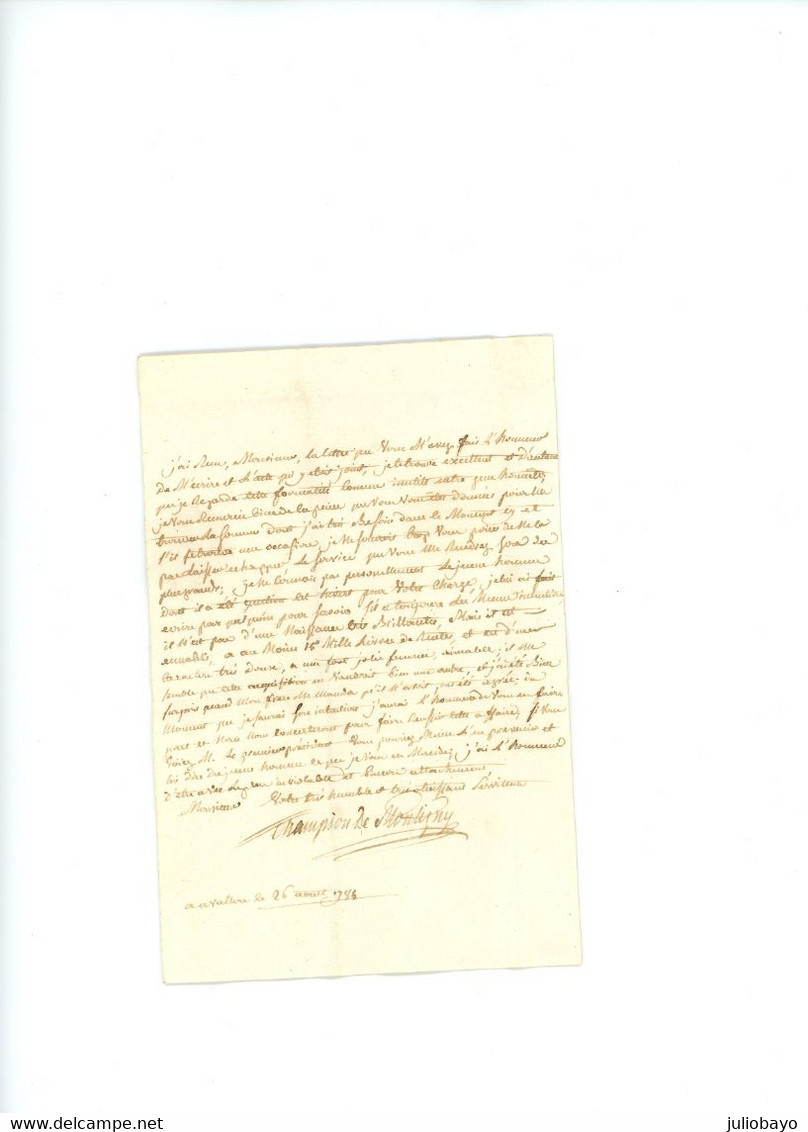 j'ai Recu, Monsieur, la lettre que Vous M'avez fais l'honneur
De M'écrire et l'acte qui y etoit joint, je le trouve excellent et
que je Regarde cette formalité Comme inutile entre gens honnetes,
je Vous Remercie bien de la peine que Vous Vous etes Donnée pour Me
trouver la somme dont j'ai très Besoin dans le Moment cy et
s'il se trouve une occasion, je Me
pas laisser echapper le service que Vous Me Rendrez sera des
plus grands; je Ne Connois pas personnellement le jeune homme
Dont il a été question pour Votre Charge, je lui ai fait
ecrire pour savoir s'il a toujours les Meme intentions,
il N'est pas d'une Naissance très Brillante, Mais il est
a au Moins 15 Mille livres de Rentes, et est d'un
Caractere très doux, a une fort jolie femme, aimable; il Me
semble que cette acquisition en Vaudroit bien une autre, et j'ai été Bien
surpris quand Mon frere Me Manda qu'il N'avoit pas été agréé; du
Moment que je saurai ses intentions j'aurai l'honneur de Vous en faire
part et Nous Nous concerterons pour faire Reussir cette affaire, si Vous
Voiez M. Le premier président Vous pouvez Meme l'en prevenir et
lui dire du jeune homme ce que je Vous en Mande; j'ai l'honneur
d'etre avec le plus inviolable et sincere attachement
Monsieur Votre très humble et très obeissant Serviteur
Champion De Montigny
a avallon le 26 aout 1786
juliobayo